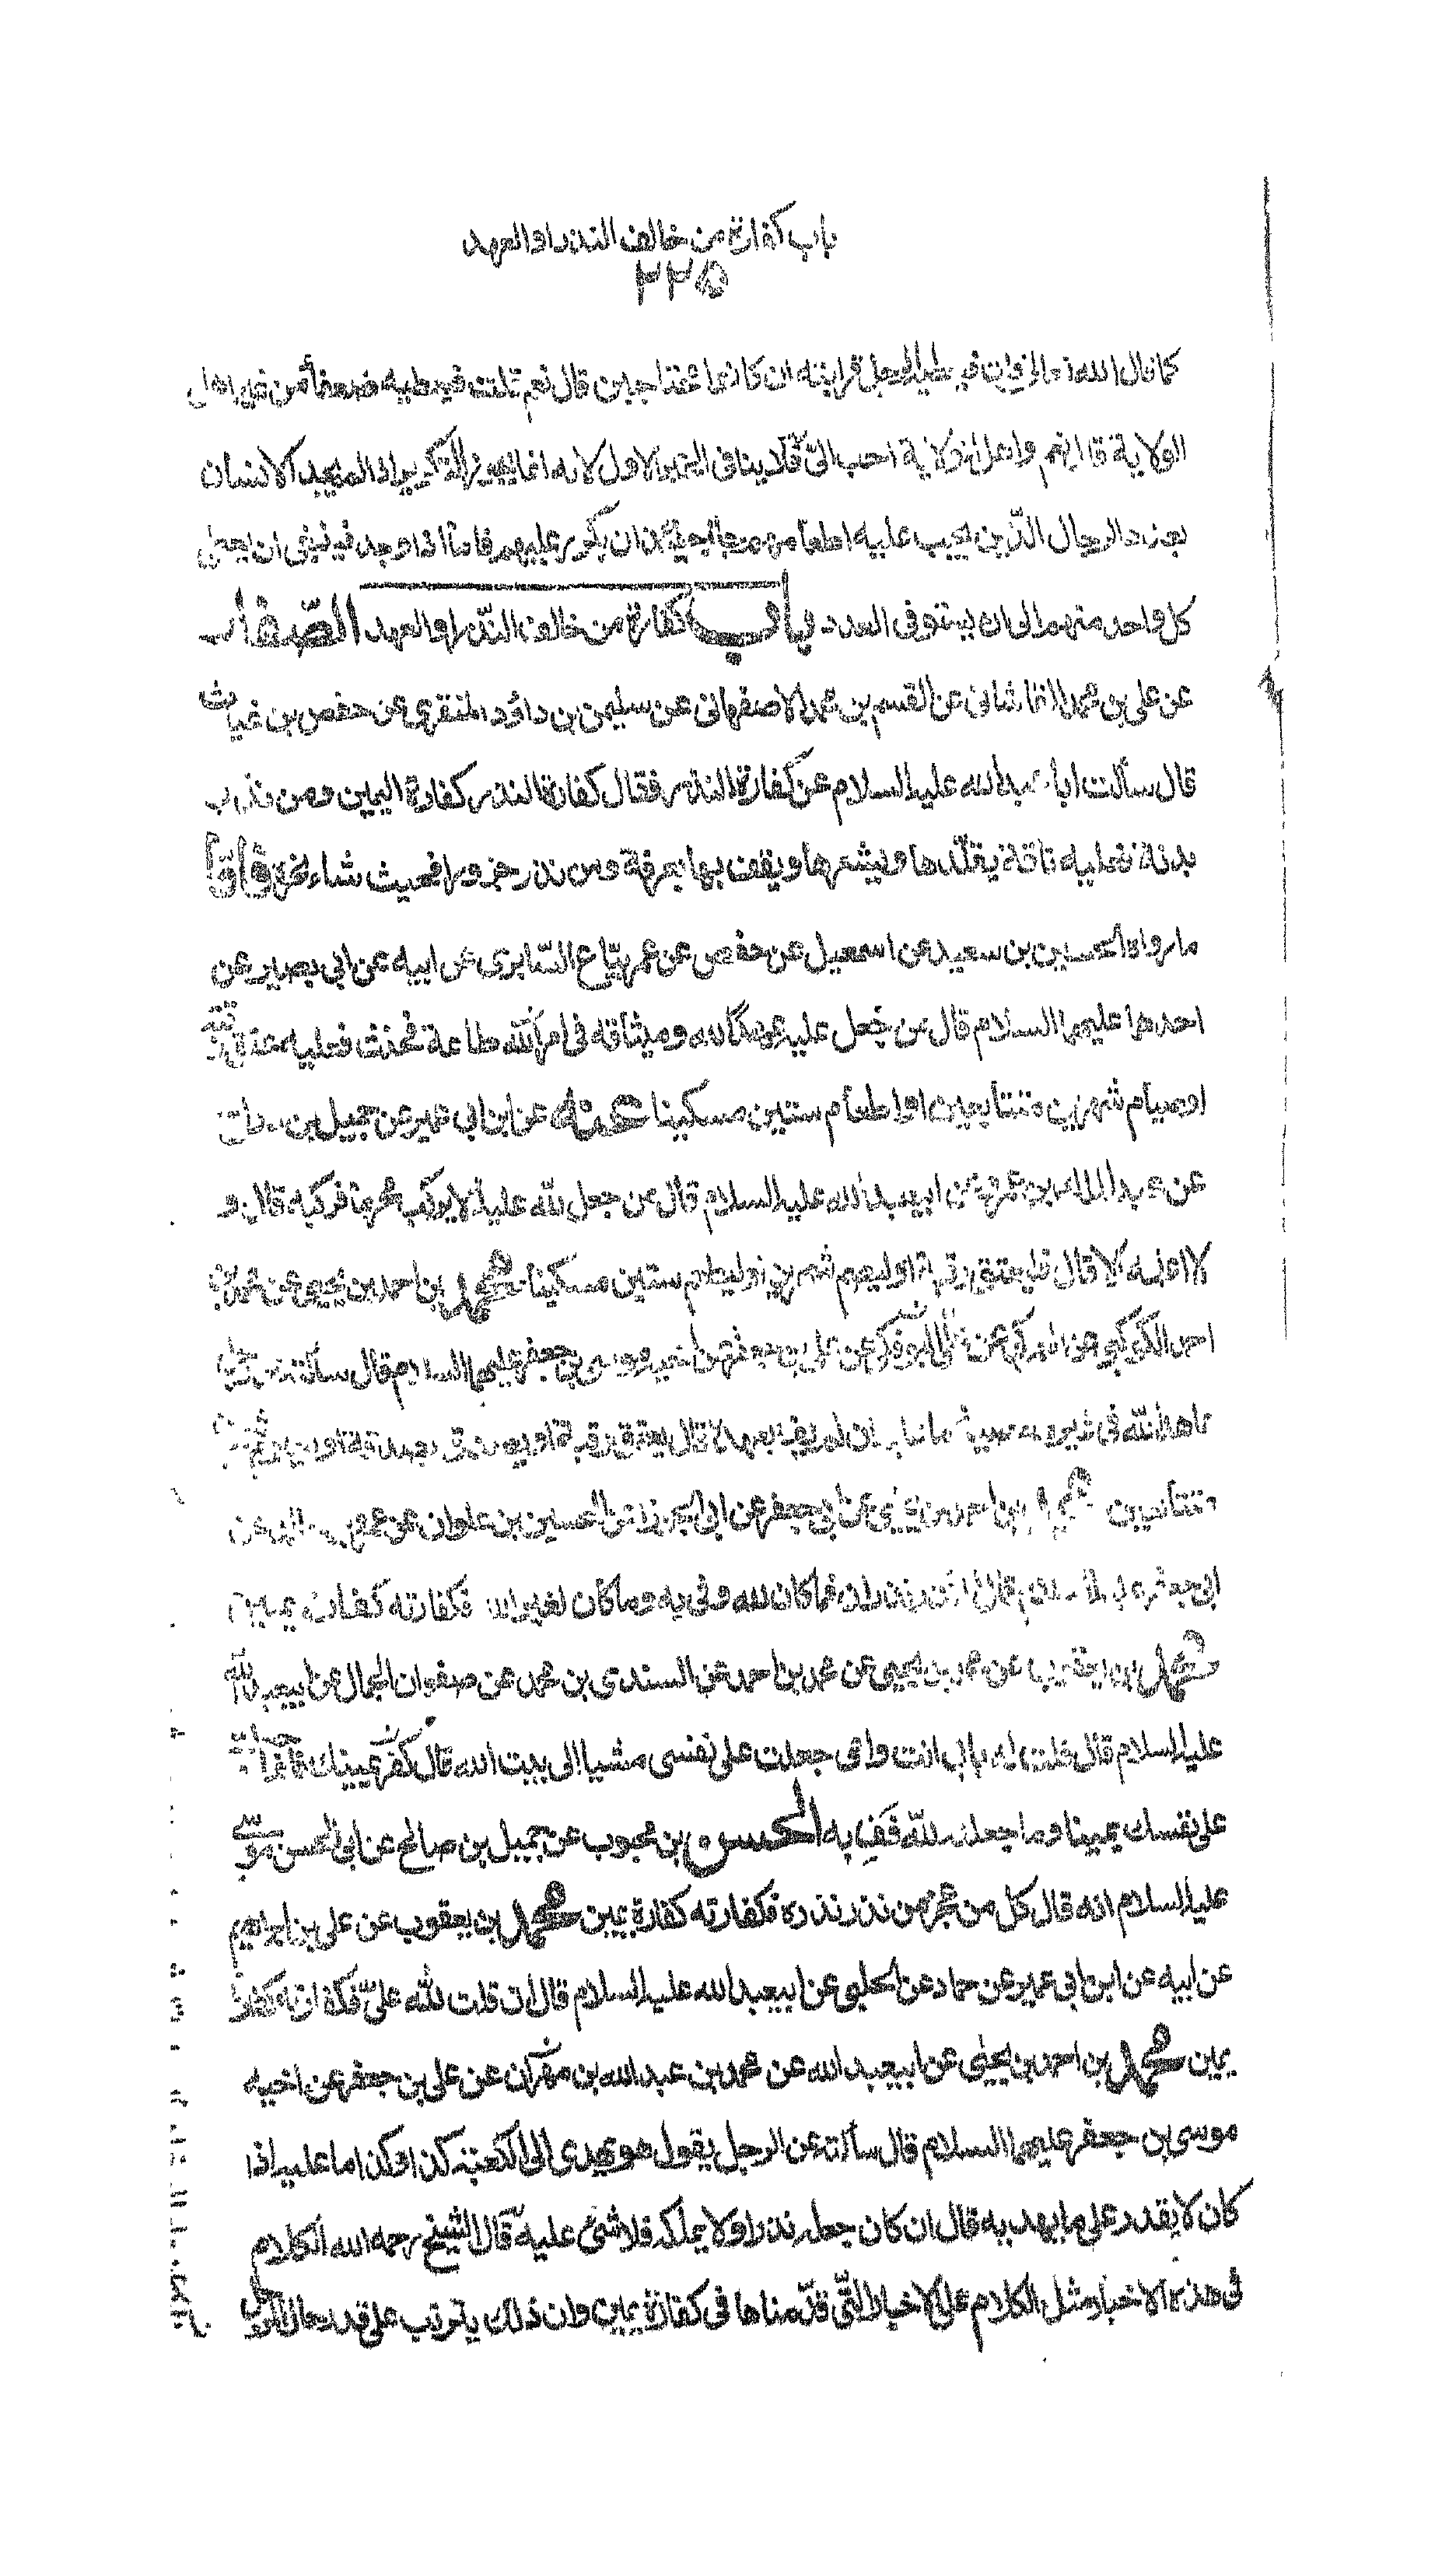 باب كفارة من خالف النذر او العهد
٢٢٥
كما قال الله تعالى قلت فيعطيه الرجل قرابته ان كانوا محتاجين قال نعم قلت فيعطيه ضعفاء من غير اهل
الولاية قال نعم واهل الولاية احب الىّ فلا ينافى الخبر الاول لانه انما يجوز التكرير اذا لم يجد الانسان
بعدد الرجال الذين يجب عليه اطعامهم ان يكرر عليهم فاما اذا وجد فينبغى ان يعطى
كل واحد منهم الى ان يستوفى العدد باب كفارة من خالف النذر او العهد الصفار
عن على بن محمد القاشانى عن القسم بن محمد الاصفهانى عن سليمن بن داود المنقرى عن حفص بن غياث
قال سألت ابا عبد الله عليه السلام عن كفارة النذر فقال كفارة النذر كفارة اليمين ومن نذر
بدنة فعليه ناقة يقلّدها ويشعرها ويقف بها بعرفة ومن نذر جزورا فحيث شاء نحره فاما
ما رواه الحسين بن سعيد عن اسمعيل عن حفص عن عمر بيّاع السّابرى عن ابيه عن ابى بصير عن
احدهما عليهما السلام قال من جعل عليه عهد الله وميثاقه فى امر لله طاعة فحنث فعليه عتق رقبة
او صيام شهرين متتابعين او اطعام ستين مسكينا عنه عن ابن ابى عمير عن جميل بن دراج
عن عبد الملك بن عمرو عن ابيعبد الله عليه السلام قال من جعل لله عليه الا يركب محرما فركبه قال و
لا اعلمه الا قال فليعتق رقبة او ليصم شهرين او ليطعم ستين مسكينا محمد بن احمد بن يحيى عن محمد بن
احمد الكوكبى عن العمركى البوفكى عن على بن جعفر عن اخيه موسى بن جعفر عليهما السلام قال سألته عن رجل
عاهد الله فى غير معصية ما عليه ان لم يف بعهده قال يعتق رقبة او يتصدق بصدقة او يصوم شهرين
متتابعين محمد بن احمد بن يحيى عن ابى جعفر عن ابى الجوزاء عن الحسين بن علوان عن عمرو بن خالد عن
ابى جعفر عليه السلام قال النذر نذران فما كان لله وفى به وما كان لغير الله فكفارته كفارة يمين
محمد بن يعقوب عن محمد بن يحيى عن محمد بن احمد عن السندى بن محمد عن صفوان الجمال عن ابيعبد الله
عليه السلام قال قلت له بابى انت وامى جعلت على نفسى مشيا الى بيت الله قال كفر يمينك فانما جعلت
على نفسك يمينا وما جعلته لله فَفِ به الحسن بن محبوب عن جميل بن صالح عن ابى الحسن موسى
عليه السلام انه قال كل من عجز من نذر نذره فكفارته كفارة يمين محمد بن يعقوب عن على بن ابراهيم
عن ابيه عن ابن ابى عمير عن حماد عن الحلبى عن ابيعبد الله عليه السلام قال ان قلت لله علىّ فكفارته كفارة
يمين محمد بن احمد بن يحيى عن ابيعبد الله عن محمد بن عبد الله بن مهران عن على بن جعفر عن اخيه
موسى بن جعفر عليهما السلام قال سألته عن الرجل يقول هو يهدى الى الكعبة كذا وكذا ما عليه اذا
كان لا يقدر على ما يهديه قال ان كان جعله نذرا ولا يملكه فلا شئ عليه قال الشيخ رحمه الله الكلام
فى هذه الاخبار مثل الكلام على الاخبار التى قدّمناها فى كفارة يمين وان ذلك يترتب على قدر حال الرجل